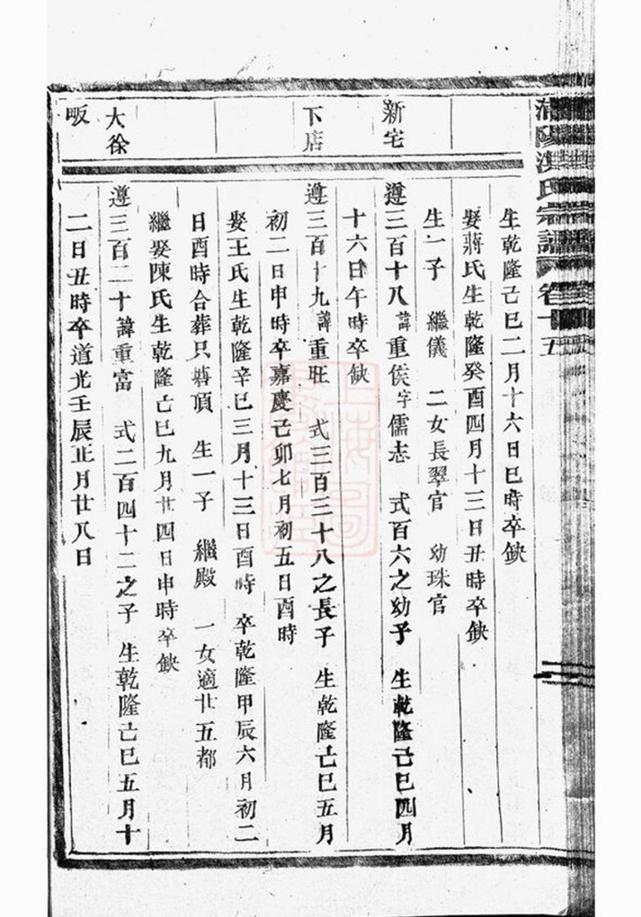 陽氏宗譜 卷十五
生乾隆己巳二月十六日巳時卒缺
娶蔣氏生乾隆癸酉四月十三日丑時卒缺
生一子 繼儀 二女長翠官 幼珠官
新宅
遵三百十八諱重俟字儒志 式百六之幼子 生乾隆己巳四月
十六日午時卒缺
下店
遵三百十九諱重旺 式三百三十八之長子 生乾隆己巳五月
初二日申時卒嘉慶己卯七月初五日酉時
娶王氏生乾隆辛巳三月十三日酉時 卒乾隆甲辰六月初二
日酉時合葬只頂 生一子 繼殿 一女適廿五都
繼娶陳氏生乾隆己巳九月廿四日申時卒缺
大徐
遵三百二十諱重富 式二百四十二之子 生乾隆己巳五月十
畈
二日丑時卒道光壬辰正月廿八日